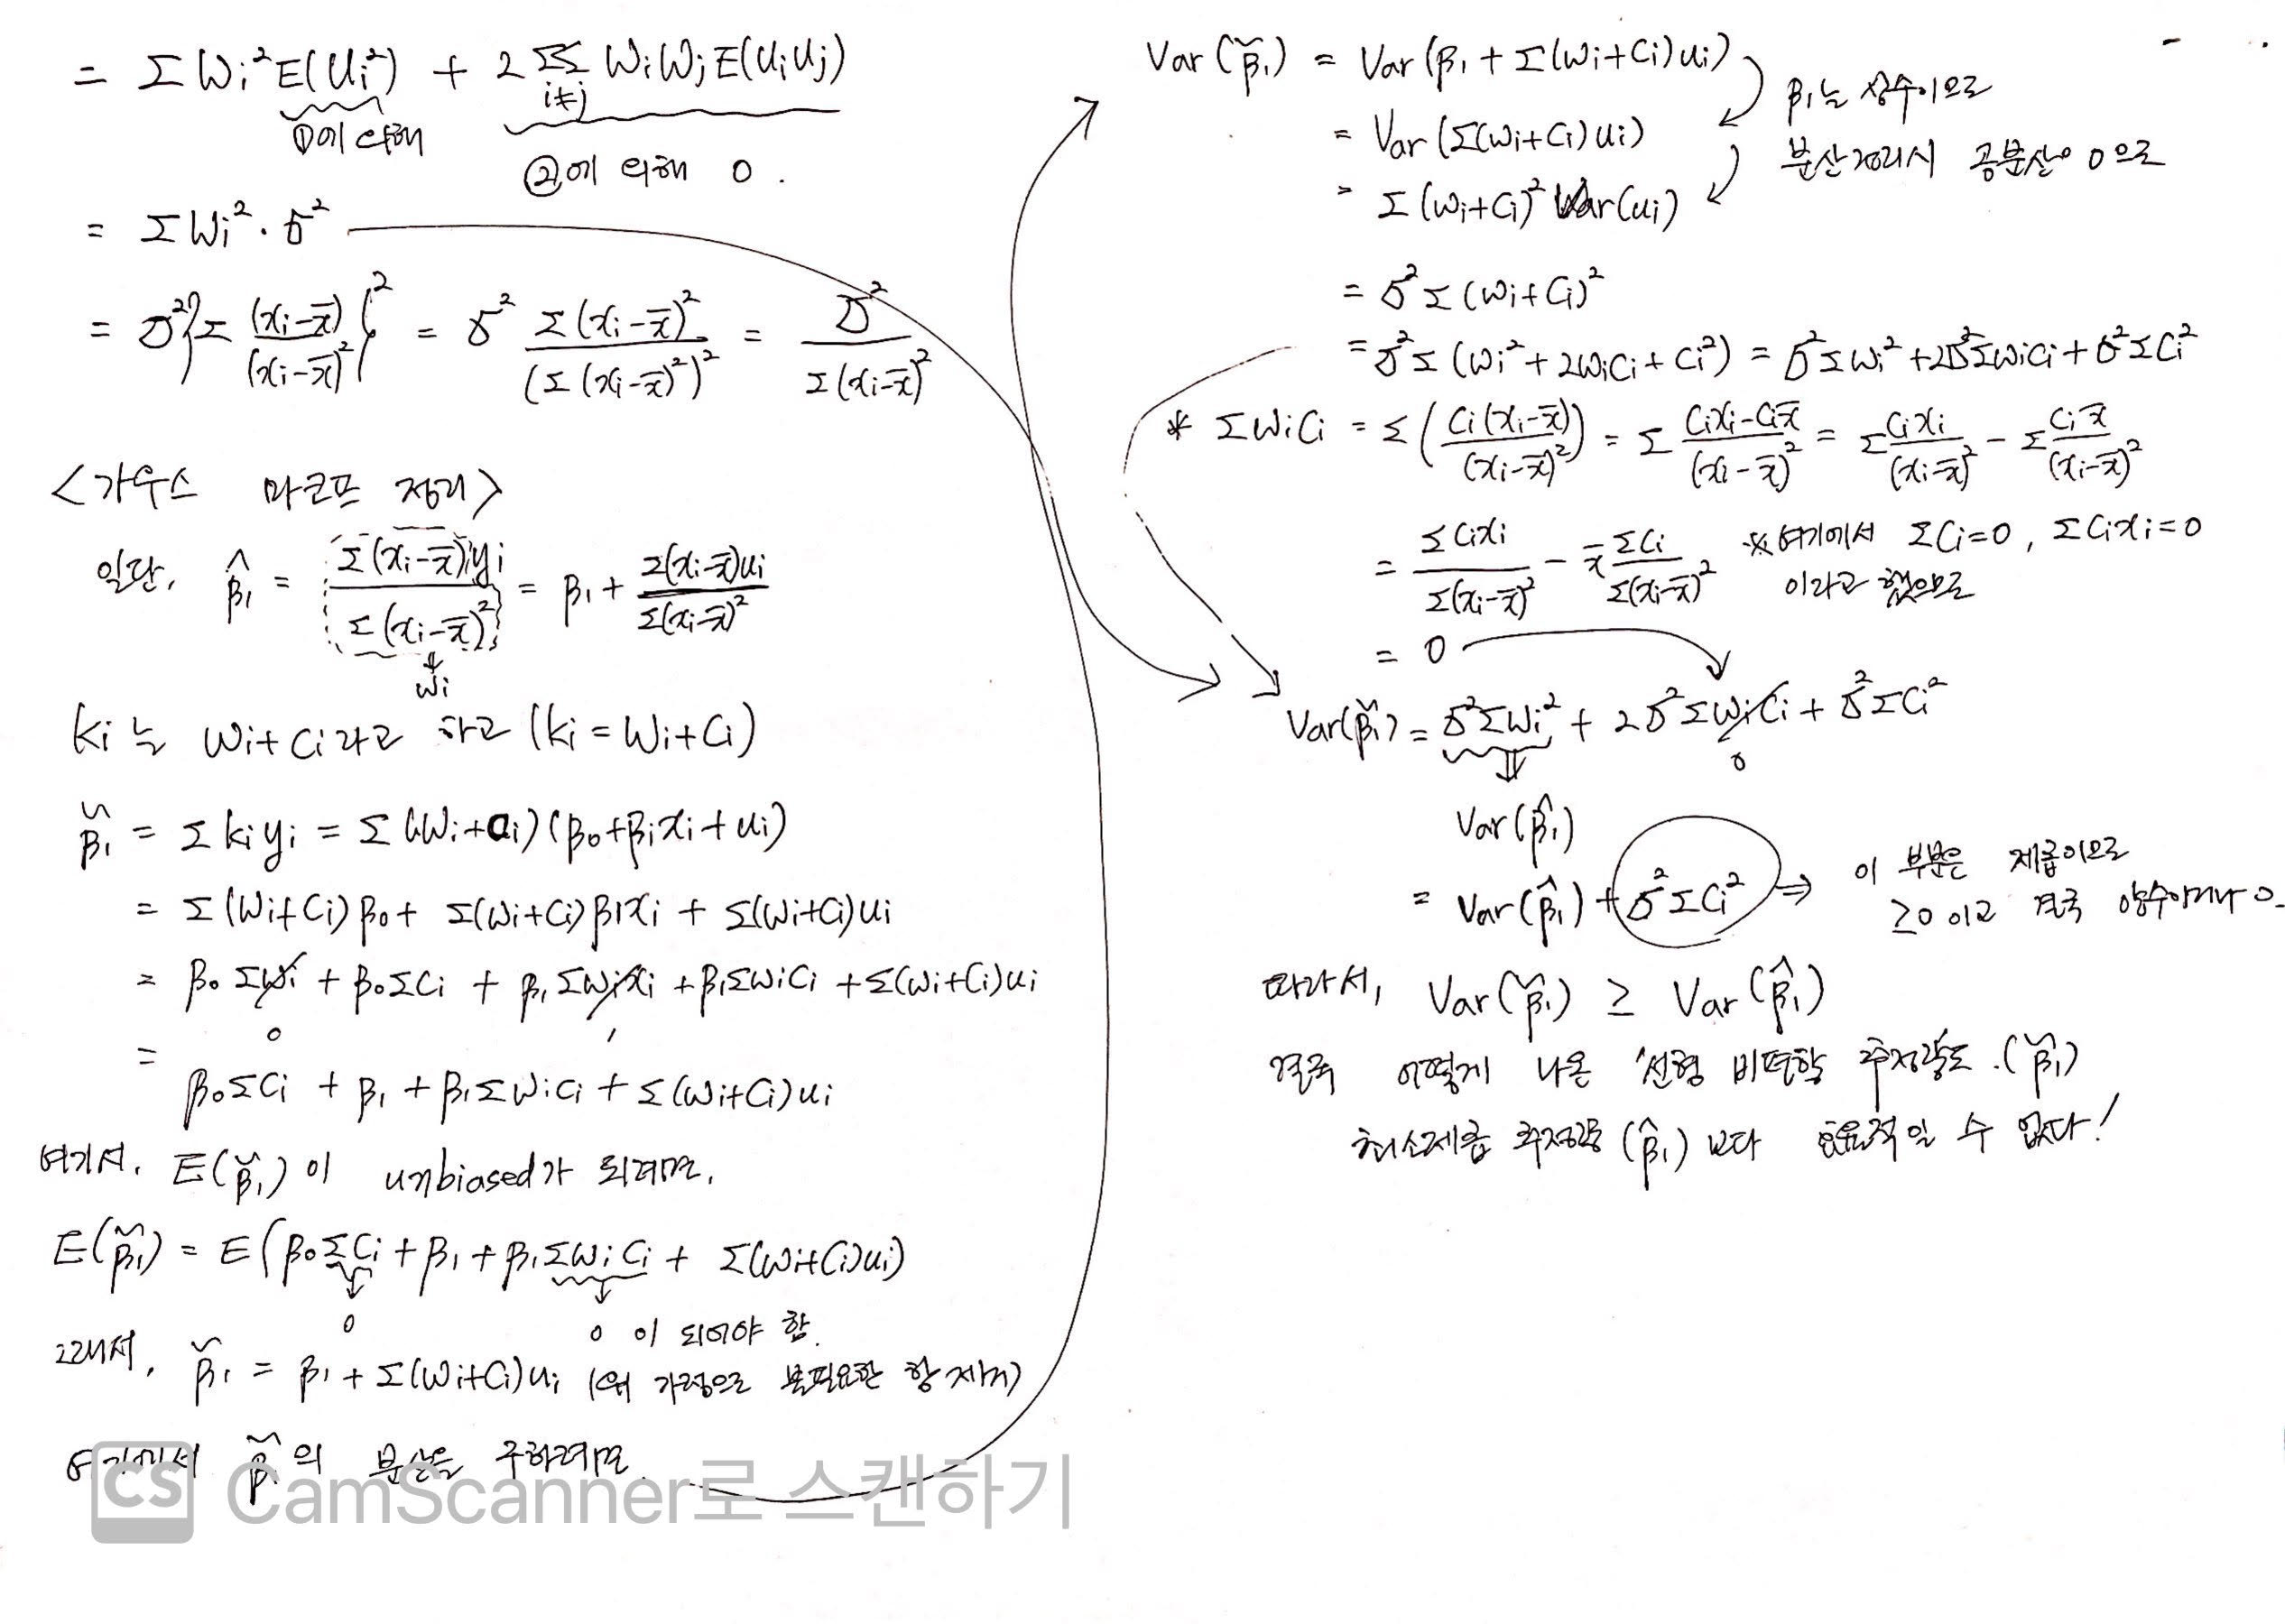 = ΣWi²E(Ui²) + 2ΣΣ WiWjE(UiUj)
i≠j
①에 의해
②에 의해 0.
= ΣWi²·σ²
= σ²{Σ (xi-x̄)/(xi-x̄)²}² = σ² Σ(xi-x̄)²/(Σ(xi-x̄)²)² = σ²/Σ(xi-x̄)²
<가우스 마코프 정리>
일단, β̂₁ = Σ(xi-x̄)yi/Σ(xi-x̄)² = β₁ + Σ(xi-x̄)ui/Σ(xi-x̄)²
wi
ki는 wi+ci라고 하고 (ki = Wi+Ci)
β̃₁ = Σkiyi = Σ(Wi+ai)(β₀+β₁xi+ui)
= Σ(Wi+Ci)β₀ + Σ(Wi+Ci)β₁xi + Σ(Wi+Ci)ui
= β₀Σwi + β₀ΣCi + β₁Σwixi + β₁ΣwiCi + Σ(wi+Ci)ui
0 1
=
β₀ΣCi + β₁ + β₁ΣWiCi + Σ(Wi+Ci)ui
여기서, E(β̃₁)이 unbiased가 되려면,
E(β̃₁) = E(β₀ΣCi + β₁ + β₁ΣWiCi + Σ(Wi+Ci)ui)
0 0 이 되어야 함.
그래서, β̃₁ = β₁ + Σ(Wi+Ci)ui (위 가정으로 불필요한 항 제거)
여기에서 β̃₁의 분산을 구하려면
CS CamScanner로 스캔하기
Var(β̃₁) = Var(β₁ + Σ(Wi+Ci)ui)
β₁는 상수이므로
= Var(Σ(Wi+Ci)ui)
분산정리시 공분산이 0으로
= Σ(Wi+Ci)²Var(ui)
= σ²Σ(Wi+Ci)²
= σ²Σ(Wi²+2WiCi+Ci²) = σ²ΣWi²+2σ²ΣWiCi+σ²ΣCi²
* ΣWiCi = Σ(Ci(xi-x̄)/(xi-x̄)²) = Σ Cixi-Cix̄/(xi-x̄)² = Σ Cixi/(xi-x̄)² - Σ Cix̄/(xi-x̄)²
= ΣCixi/Σ(xi-x̄)² - x̄ ΣCi/Σ(xi-x̄)² ※ 여기에서 ΣCi=0, ΣCixi=0
이라고 했으므로
= 0
Var(β̃₁) = σ²ΣWi² + 2σ²ΣWiCi + σ²ΣCi²
0
Var(β̂₁)
= Var(β̂₁) + σ²ΣCi² ⇒ 이 부분은 제곱이므로
≥0 이고 결국 양수이거나 0.
따라서, Var(β̃₁) ≥ Var(β̂₁)
결국 어떻게 나온 선형 비편향 추정량도 (β̃₁)
최소제곱 추정량 (β̂₁) 보다 효율적일 수 없다!